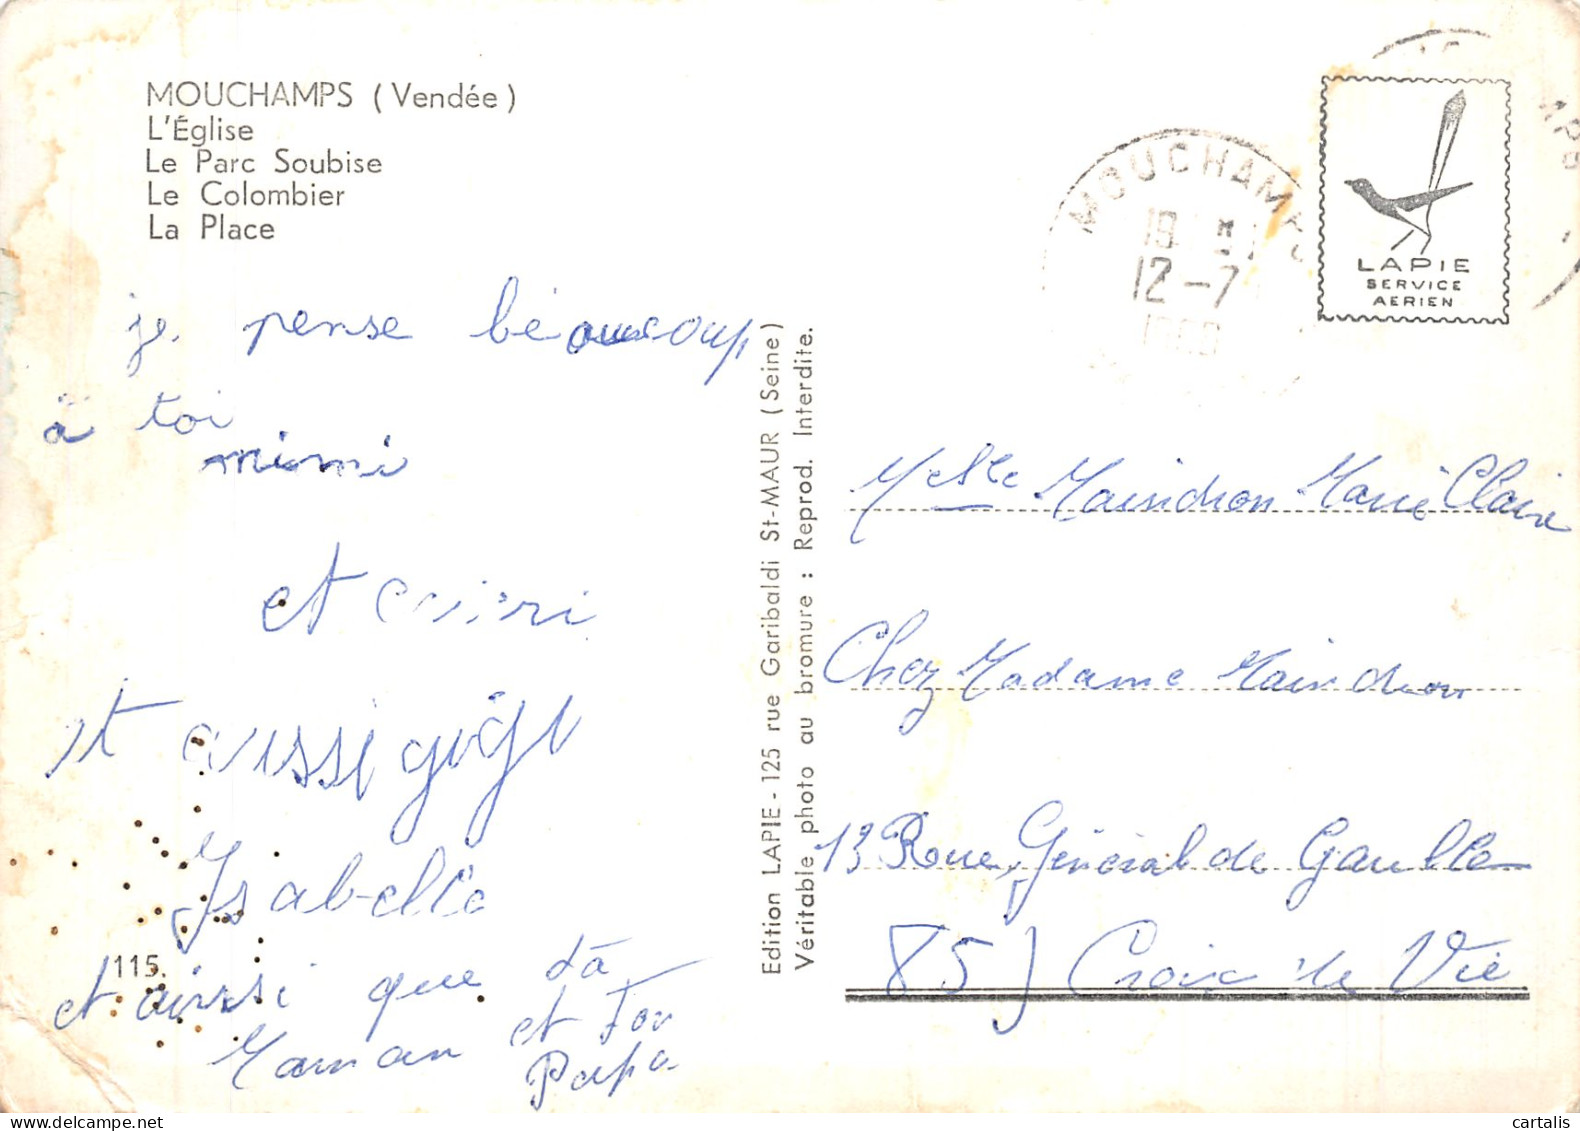 MOUCHAMPS (Vendée)
L'Église
Le Parc Soubise
Le Colombier
La Place
je pense béaucoup
à toi
mimi
et
et aussi gigi
Isabelle
115.
et ainsi que ta
Maman et ton
Papa
Edition LAPIE - 125 rue Garibaldi St-MAUR (Seine)
Véritable photo au bromure : Reprod. Interdite.
MOUCHAMPS
12-7
LAPIE
SERVICE
AERIEN
Melle Maindron Marie Claire
Chez Madame Maindron
13 Rue Général de Gaulle
85) Croix de Vie
cartalis